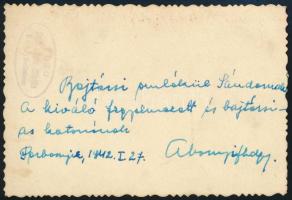 Bajtársi emlékül Sándornak
A kiváló fegyelmezett és bajtársi-
as katonának
1942. I. 27.